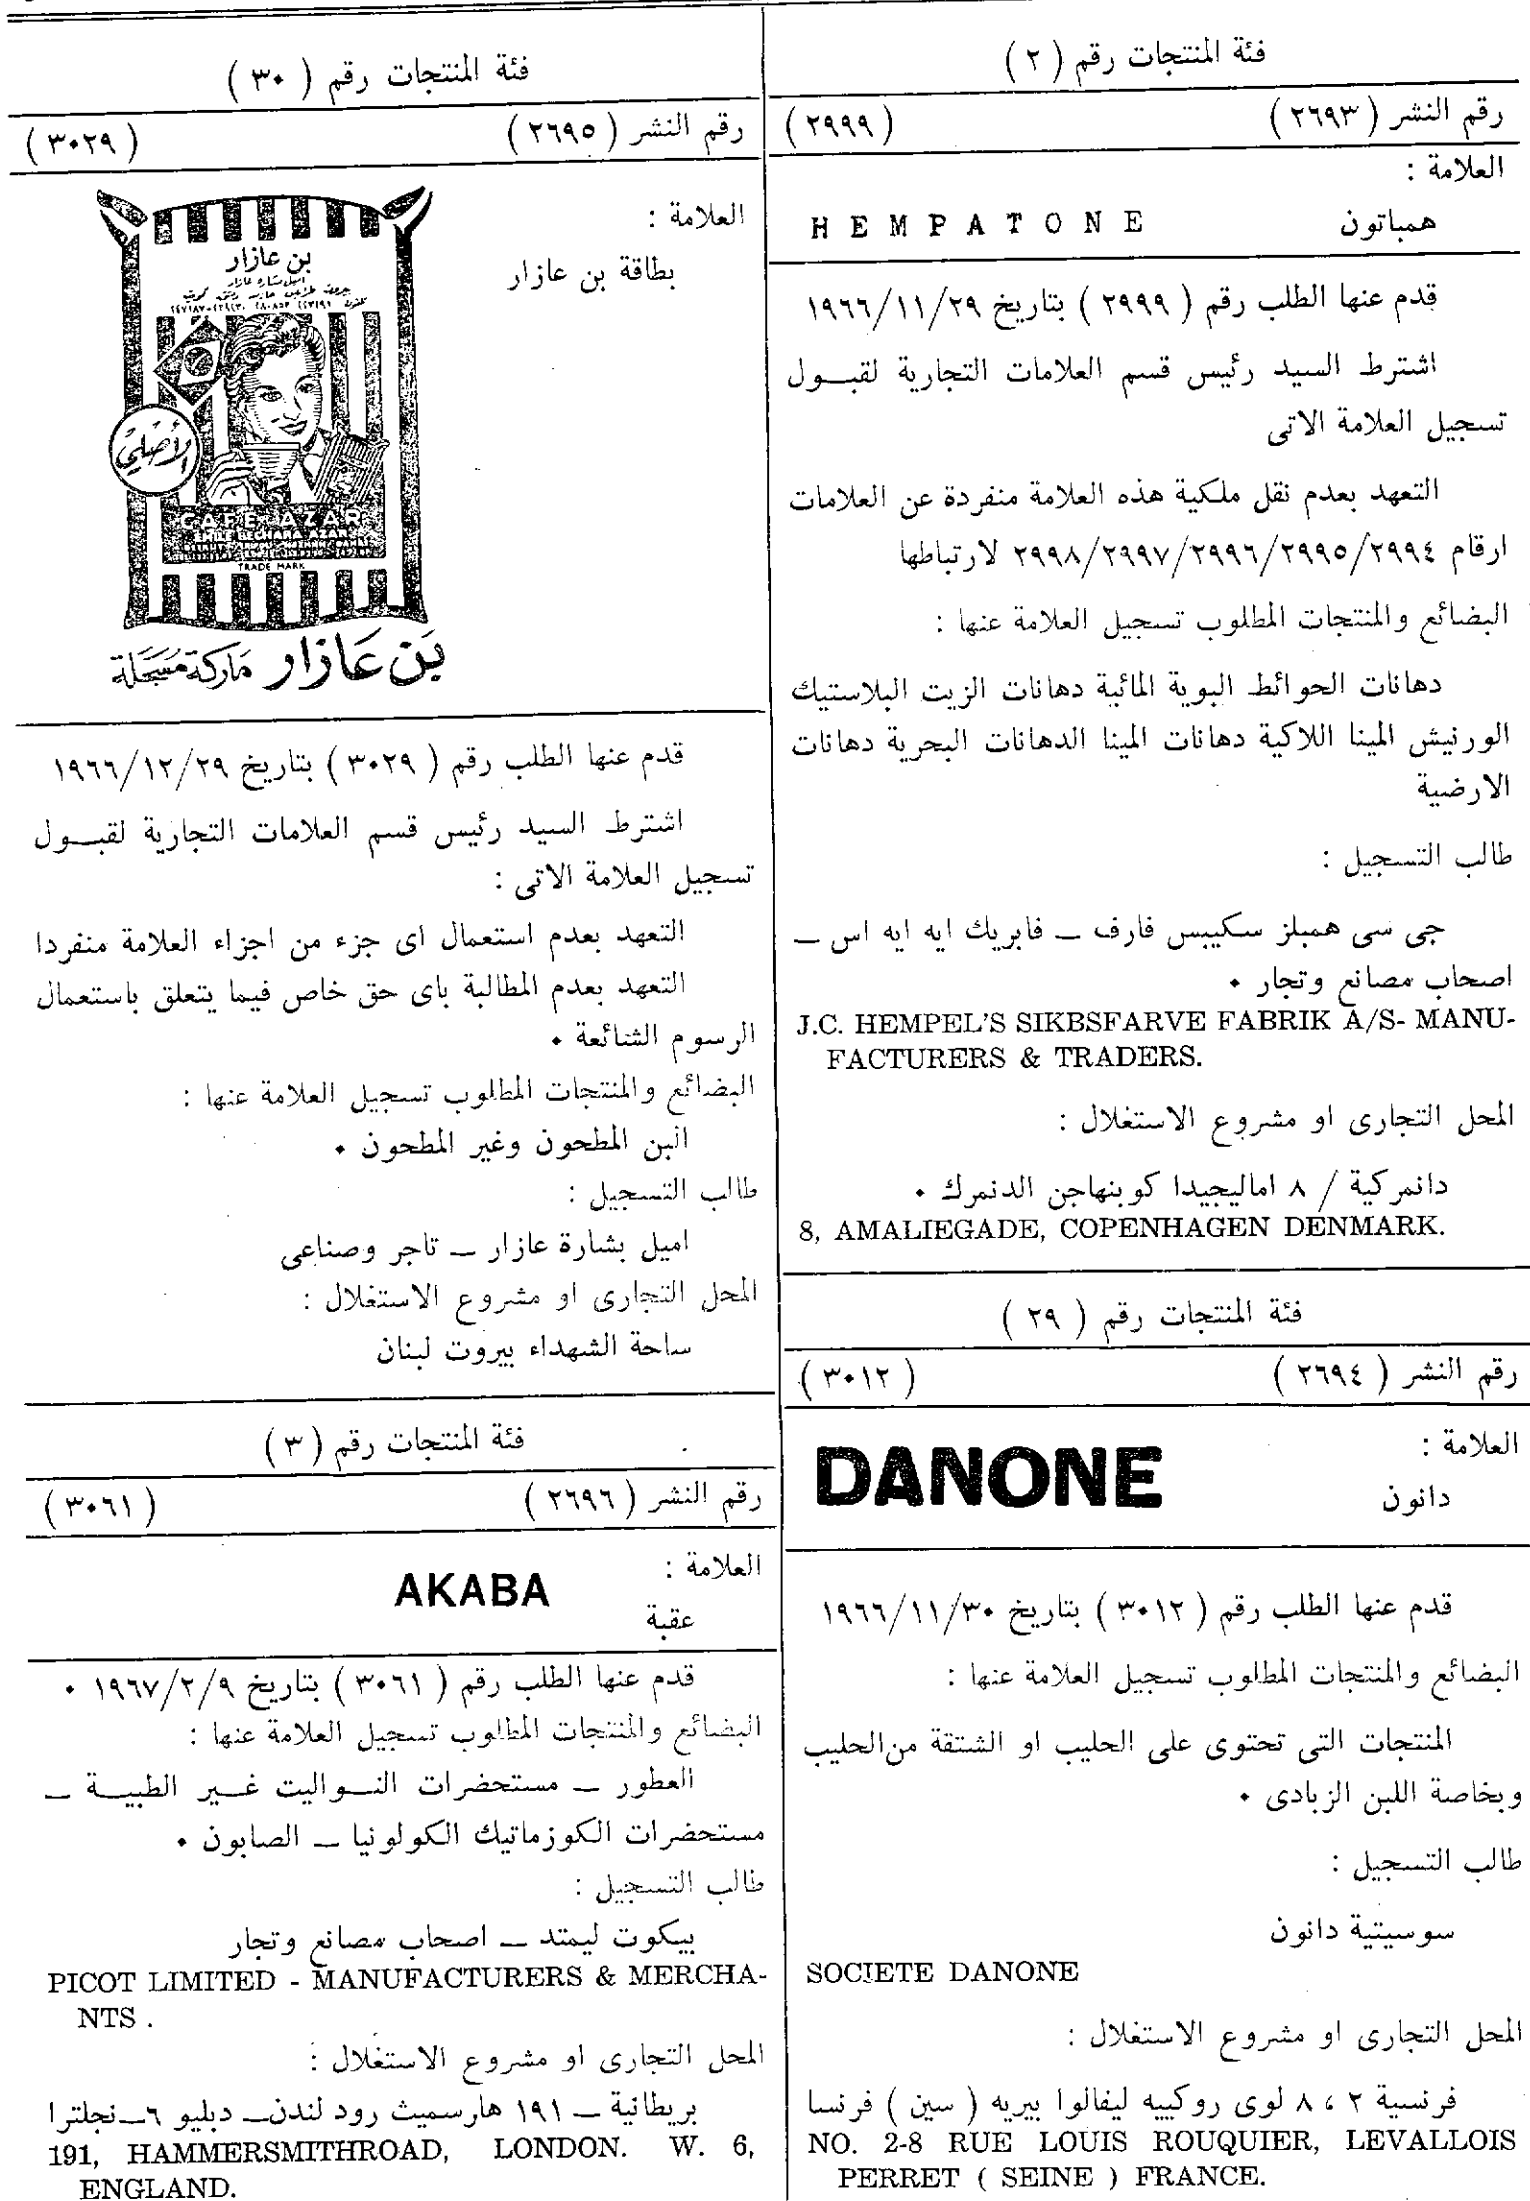 فئة المنتجات رقم ( ٢ )
رقم النشر ( ٢٦٩٣ ) ( ٢٩٩٩ )
العلامة :
همباتون HEMPATONE
قدم عنها الطلب رقم ( ٢٩٩٩ ) بتاريخ ١٩٦٦/١١/٢٩
اشترط السيد رئيس قسم العلامات التجارية لقبول
تسجيل العلامة الاتى
التعهد بعدم نقل ملكية هذه العلامة منفردة عن العلامات
ارقام ٢٩٩٤/٢٩٩٥/٢٩٩٦/٢٩٩٧/٢٩٩٨ لارتباطها
البضائع والمنتجات المطلوب تسجيل العلامة عنها :
دهانات الحوائط البوية المائية دهانات الزيت البلاستيك
الورنيش المينا اللاكية دهانات المينا الدهانات البحرية دهانات
الارضية
طالب التسجيل :
جى سى همبلز سكيبس فارف ــ فابريك ايه ايه اس ــ
اصحاب مصانع وتجار ٠
J.C. HEMPEL'S SIKBSFARVE FABRIK A/S- MANU-
FACTURERS & TRADERS.
المحل التجارى او مشروع الاستغلال :
دانمركية / ٨ اماليجيدا كوبنهاجن الدنمرك ٠
8, AMALIEGADE, COPENHAGEN DENMARK.
فئة المنتجات رقم ( ٢٩ )
رقم النشر ( ٢٦٩٤ ) ( ٣٠١٢ )
العلامة :
دانون DANONE
قدم عنها الطلب رقم ( ٣٠١٢ ) بتاريخ ١٩٦٦/١١/٣٠
البضائع والمنتجات المطلوب تسجيل العلامة عنها :
المنتجات التى تحتوى على الحليب او الشتقة من الحليب
وبخاصة اللبن الزبادى ٠
طالب التسجيل :
سوسيتية دانون
SOCIETE DANONE
المحل التجارى او مشروع الاستغلال :
فرنسية ٢ ، ٨ لوى روكييه ليفالوا بيريه ( سين ) فرنسا
NO. 2-8 RUE LOUIS ROUQUIER, LEVALLOIS
PERRET ( SEINE ) FRANCE.
فئة المنتجات رقم ( ٣٠ )
رقم النشر ( ٢٦٩٥ ) ( ٣٠٢٩ )
العلامة :
بطاقة بن عازار
بن عازار
اميل بشاره عازار
الأصلي
CAFE AZAR
EMILE BECHARA AZAR
TRADE MARK
بن عازار ماركة مسجلة
قدم عنها الطلب رقم ( ٣٠٢٩ ) بتاريخ ١٩٦٦/١٢/٢٩
اشترط السيد رئيس قسم العلامات التجارية لقبول
تسجيل العلامة الاتى :
التعهد بعدم استعمال اى جزء من اجزاء العلامة منفردا
التعهد بعدم المطالبة باى حق خاص فيما يتعلق باستعمال
الرسوم الشائعة ٠
البضائع والمنتجات المطلوب تسجيل العلامة عنها :
البن المطحون وغير المطحون ٠
طالب التسجيل :
اميل بشارة عازار ــ تاجر وصناعى
المحل التجارى او مشروع الاستغلال :
ساحة الشهداء بيروت لبنان
فئة المنتجات رقم ( ٣ )
رقم النشر ( ٢٦٩٦ ) ( ٣٠٦١ )
العلامة :
عقبة AKABA
قدم عنها الطلب رقم ( ٣٠٦١ ) بتاريخ ١٩٦٧/٢/٩ ٠
البضائع والمنتجات المطلوب تسجيل العلامة عنها :
العطور ــ مستحضرات التواليت غير الطبية ــ
مستحضرات الكوزماتيك الكولونيا ــ الصابون ٠
طالب التسجيل :
بيكوت ليمتد ــ اصحاب مصانع وتجار
PICOT LIMITED - MANUFACTURERS & MERCHA-
NTS .
المحل التجارى او مشروع الاستغلال :
بريطانية ــ ١٩١ هارسميث رود لندن ــ دبليو ٦ــنجلترا
191, HAMMERSMITHROAD, LONDON. W. 6,
ENGLAND.